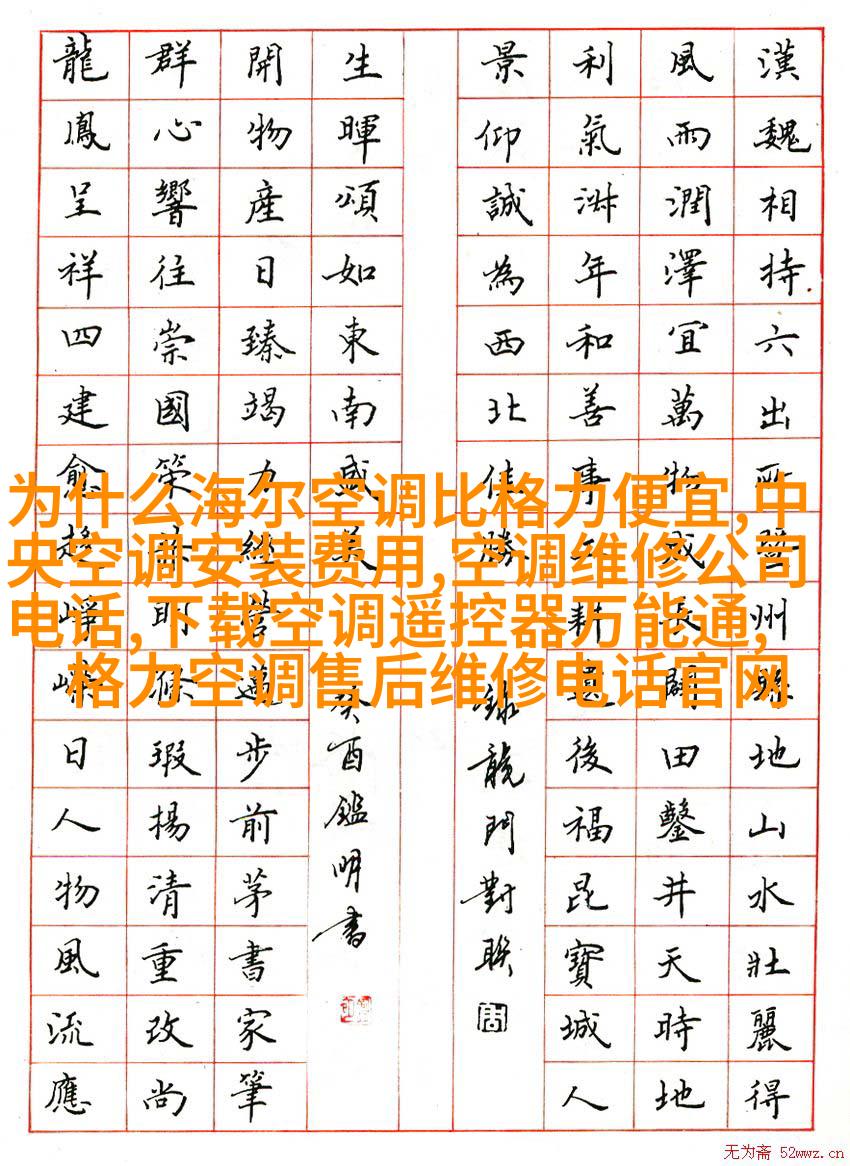 漢魏相持六出州縣地山水壯麗得
風雨潤澤宜萬物成長闢田鑿井天時地
利氣年和善事耕後福昆寶城人
景仰誠為西北勝
錄龍門對聯
生暉頌如東南盛美
癸酉鑑明書
開物產日臻竭力經營邁步前茅書家筆
群心響往崇國策明瑕揚清重改尚
龍鳳呈祥四建愈趨崢嶸日人物風流應
为什么海尔空调比格力便宜,中
央空调安装费用,空调维修公司
电话,下载空调遥控器万能通,
格力空调售后维修电话官网
无为斋 52wwz.cn